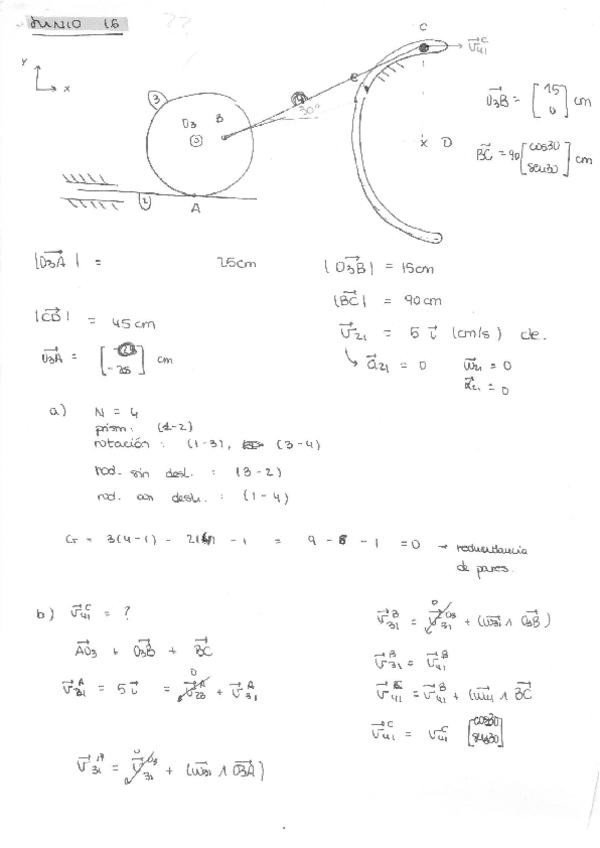 JUNIO 15
??
C
v⃗₄₁ᶜ
Y
x
3
O₃ B
30°
x O
O₃B⃗ = [15 0] cm
BC⃗ = 90 [cos30 sen30] cm
2
A
|O₃A⃗| = 25cm
|O₃B⃗| = 15cm
|BC⃗| = 90cm
|CD⃗| = 45cm
v⃗₂₁ = 5 i⃗ (cm/s) cte.
O₃A⃗ = [ -25] cm
↳ a⃗₂₁ = 0 ω⃗₂₁ = 0
α⃗₂₁ = 0
a) N = 4
prism: (1-2)
rotación: (1-3), (3-4)
rod. sin desl. : (3-2)
rod. con desl. : (1-4)
G = 3(4-1) - - 1 = 9 - 8 - 1 = 0 → redundancia
de pares.
b) v⃗₄₁ᶜ = ?
AO₃⃗ + O₃B⃗ + BC⃗
v⃗₃₁ᴬ = 5 i⃗ = v⃗₂₃ᴬ + v⃗₃₁ᴬ
v⃗₃₁ᴬ = v⃗₃₁ᴼ³ + (ω⃗₃₁ ∧ O₃A⃗)
v⃗₃₁ᴮ = v⃗₃₁ᴼ³ + (ω⃗₃₁ ∧ O₃B⃗)
v⃗₃₁ᴮ = v⃗₄₁ᴮ
v⃗₄₁ᶜ = v⃗₄₁ᴮ + (ω⃗₄₁ ∧ BC⃗
v⃗₄₁ᶜ = v₄₁ᶜ [cos30 sen30]